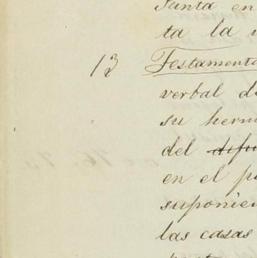 Junta en
ta la
13 Testamento
verbal d
su herm
del difu
en el p
suponien
las casas